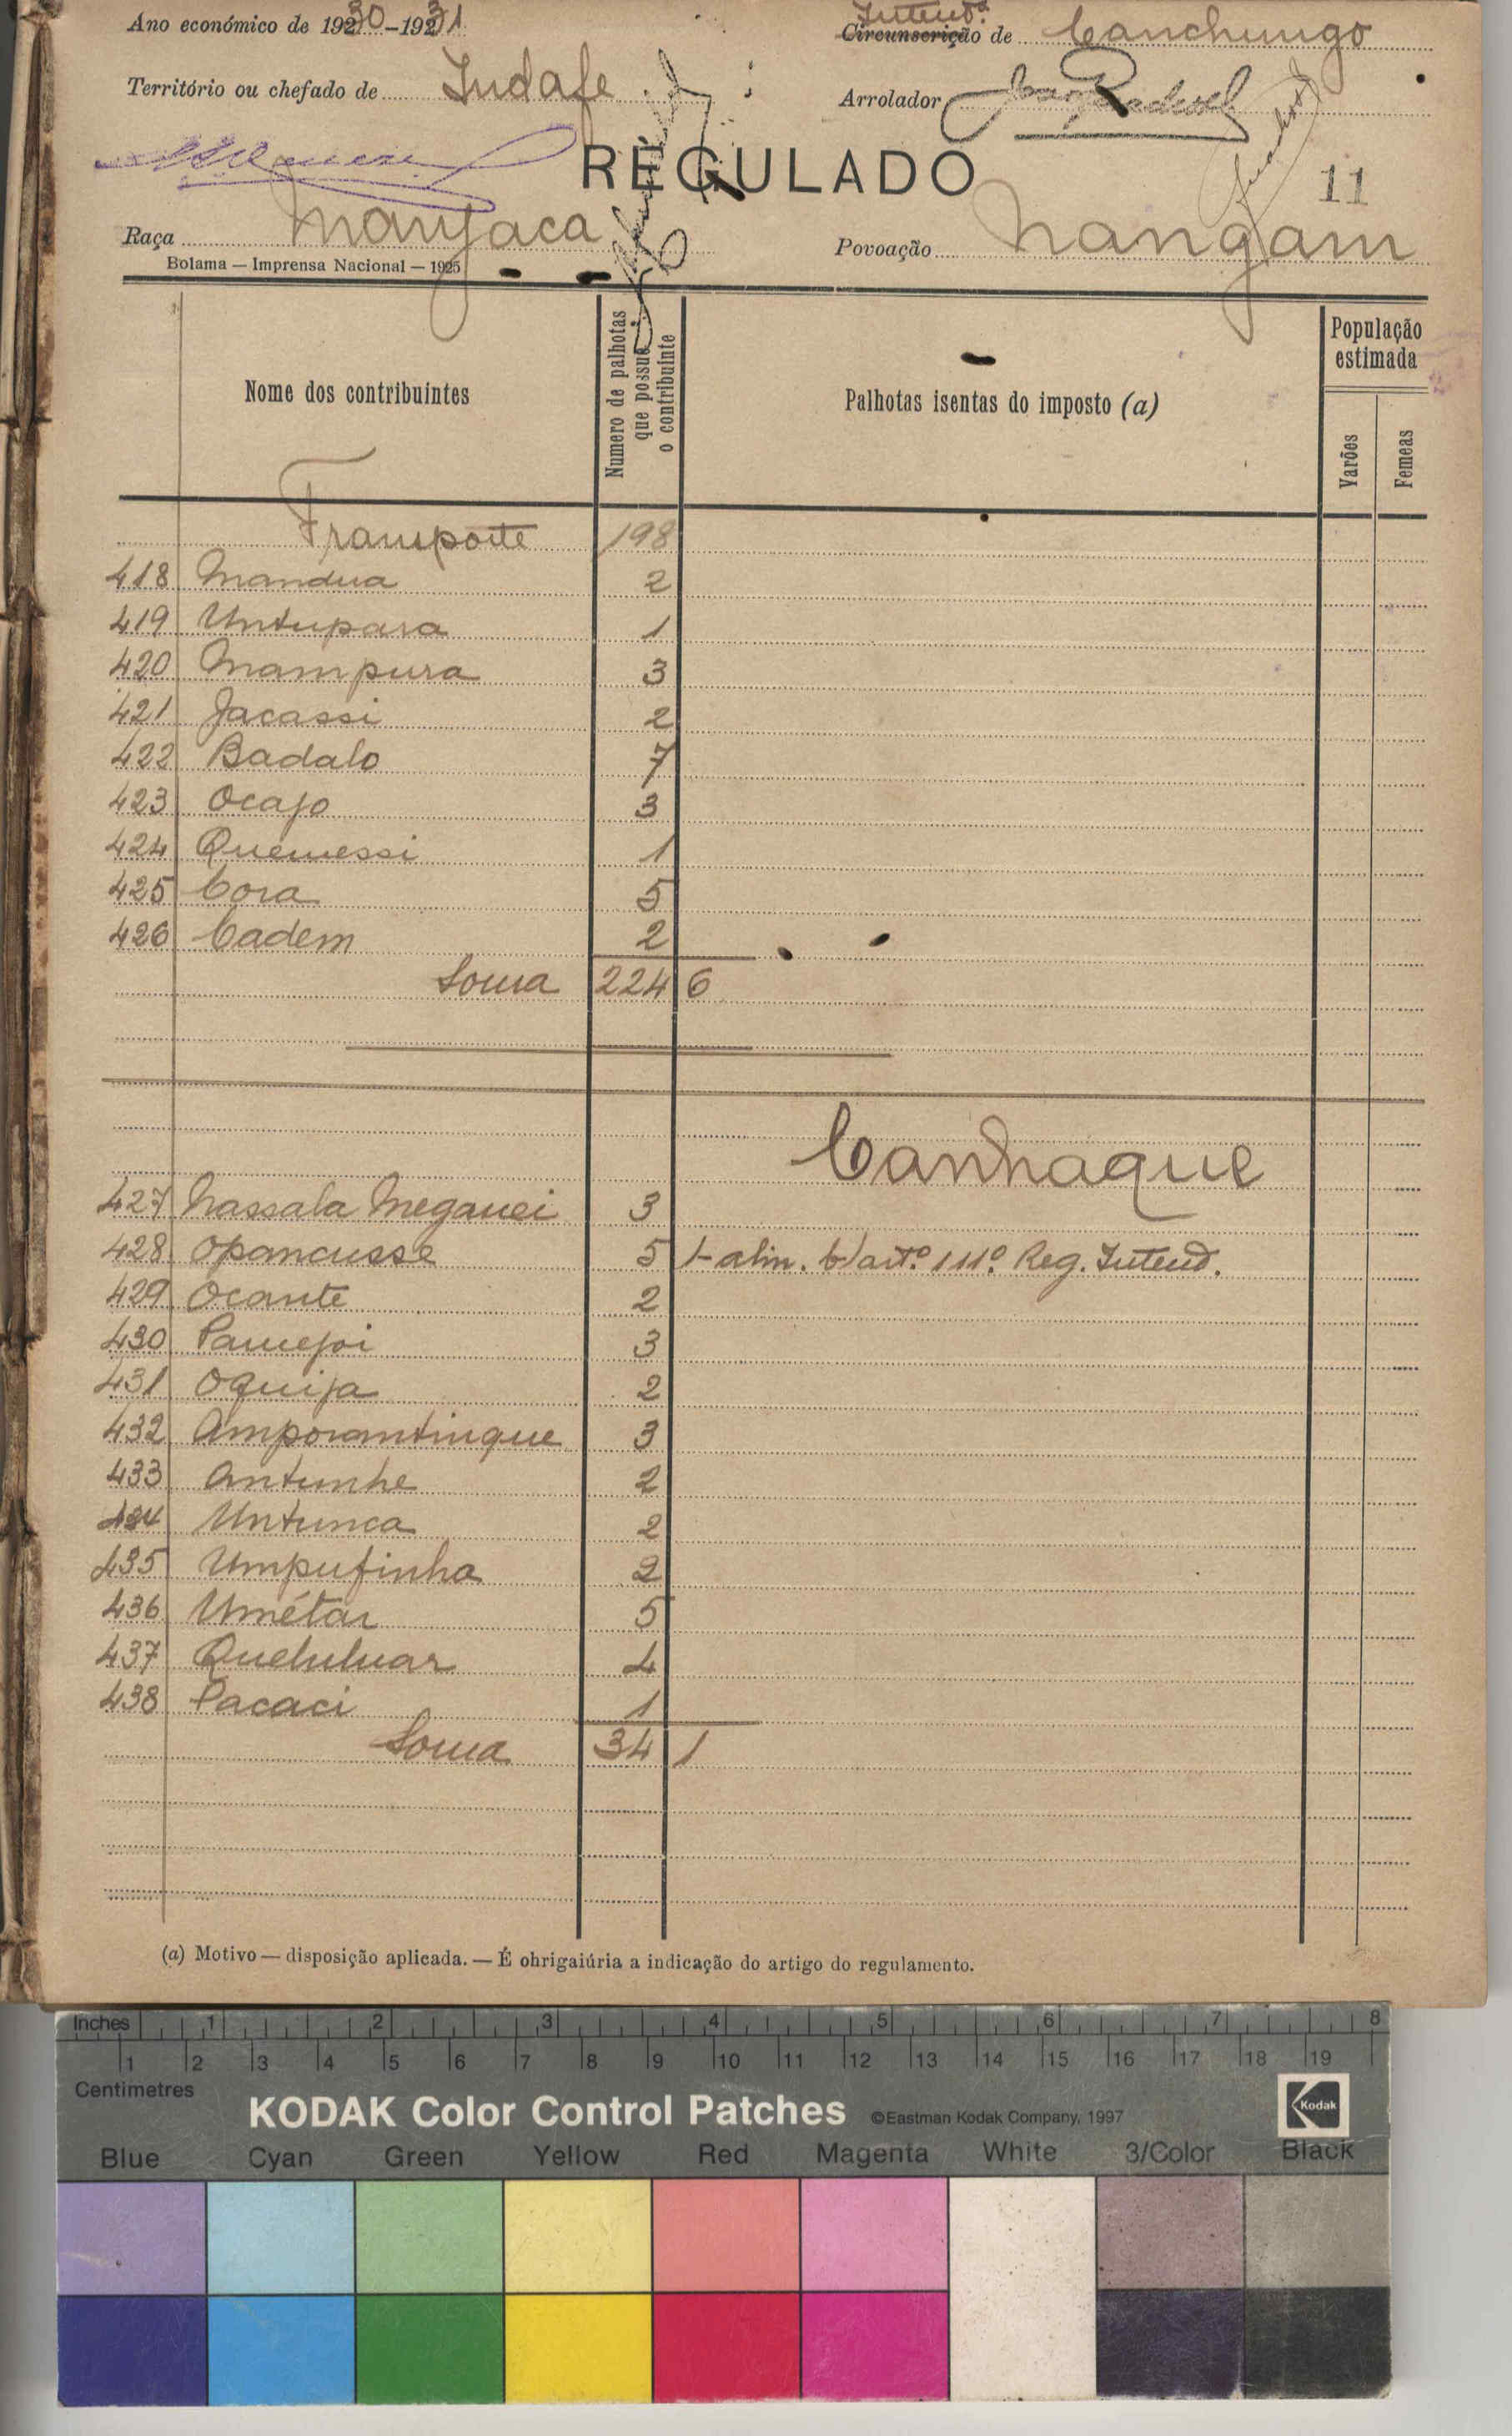 Ano económico de 1930-1931
Intend.ª
Circunscrição de Canchungo
Território ou chefado de Indafe
Arrolador
REGULADO
11
Raça Manjaca
Povoação Nangam
Bolama — Imprensa Nacional — 1925
Nome dos contribuintes
Numero de palhotas que possue o contribuinte
Palhotas isentas do imposto (a)
População estimada
Varões
Femeas
Transporte 198
418 Mandua 2
419 Untupara 1
420 Mampura 3
421 Jacassi 2
422 Badalo 7
423 Ocajo 3
424 Quemessi 1
425 Cora 5
426 Cadem 2
Soma 224 6
Canhaque
427 Nassala Meganei 3
428 Opancusse 5 1-alin. b) art.º 111º Reg. Intend.
429 Ocante 2
430 Pamejoi 3
431 Oquija 2
432 Amporantinque 3
433 Antunhe 2
434 Untunca 2
435 Umpufinha 2
436 Umétar 5
437 Queluluar 4
438 Pacaci 1
Soma 34 1
(a) Motivo — disposição aplicada. — É ohrigaiúria a indicação do artigo do regulamento.
Inches 1 2 3 4 5 6 7 8
1 2 3 4 5 6 7 8 9 10 11 12 13 14 15 16 17 18 19
Centimetres
KODAK Color Control Patches ©Eastman Kodak Company, 1997 Kodak
Blue Cyan Green Yellow Red Magenta White 3/Color Black